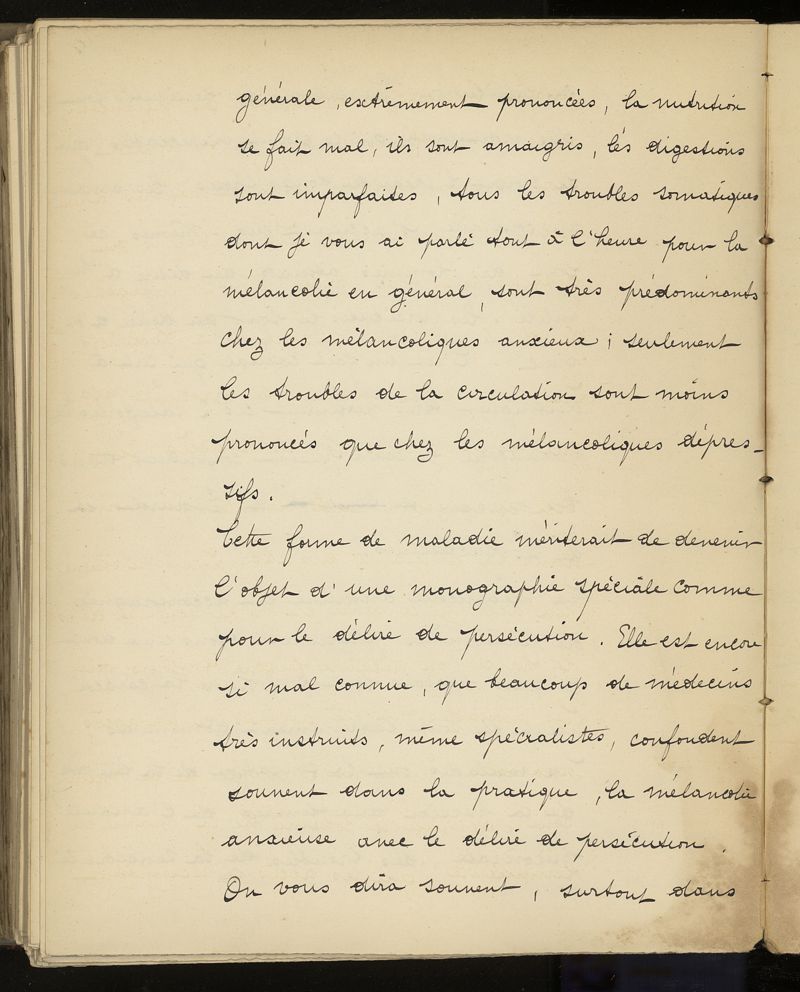 générale, extrêmement prononcées, la nutrition
se fait mal, ils sont amaigris, les digestions
sont imparfaites, tous les troubles somatiques
dont je vous ai parlé tout à l'heure pour la
mélancolie en général, sont très prédominants
chez les mélancoliques anxieux ; seulement
les troubles de la circulation sont moins
prononcés que chez les mélancoliques dépres-
sifs.
Cette forme de maladie mériterait de devenir
l'objet d'une monographie spéciale comme
pour le délire de persécution. Elle est encore
si mal connue, que beaucoup de médecins
très instruits, même spécialistes, confondent
souvent dans la pratique, la mélancolie
anxieuse avec le délire de persécution.
On vous dira souvent, surtout dans